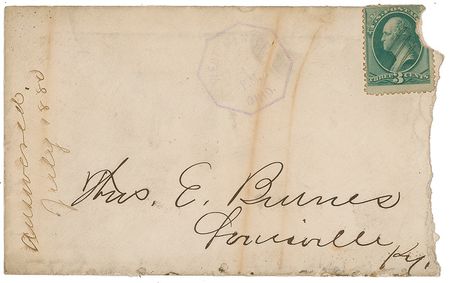 U.S. POSTAGE
THREE 3 CENTS
OHIO.
answered.
July 1880
Thos. E. Burnes
Louisville
Ky.